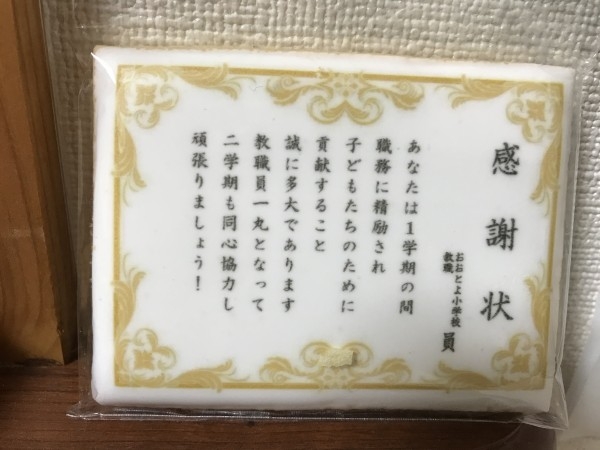 感謝状
おおとよ小学校
教職員
あなたは1学期の間
職務に精励され
子どもたちのために
貢献すること
誠に多大であります
教職員一丸となって
二学期も同心協力し
頑張りましょう！